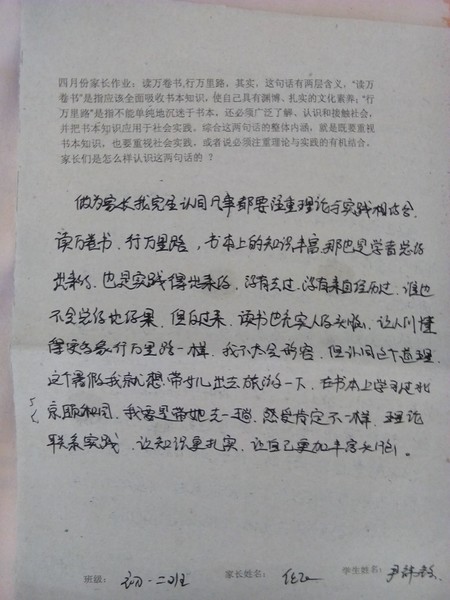 四月份家长作业：读万卷书,行万里路，其实，这句话有两层含义，“读万
卷书”是指应该全面吸收书本知识，使自己具有渊博、扎实的文化素养；“行
万里路”是指不能单纯地沉迷于书本，还必须广泛了解、认识和接触社会，
并把书本知识应用于社会实践，综合这两句话的整体内涵，就是既要重视
书本知识，也要重视社会实践，或者说必须注重理论与实践的有机结合。
家长们是怎么样认识这两句话的 ？
做为家长我完全认同凡事都要注重理论与实践相结合.
读万卷书、行万里路，书本上的知识丰富.那也是学者总结
出来的、也是实践得出来的，没有去过、没有亲自经历过，谁也
不会总结出结果，但反过来，读书也充实人的头脑，让人们懂
得 行万里路一样，我不太会形容，但认同这个道理
这个暑假我就想带女儿出去旅游一下，在书本上学习过北
京颐和园，我要是带她去一趟，感受肯定不一样，理论
联系实践，让知识更扎实，让自己更加丰富
班级： 初一.二班 家长姓名： 学生姓名： 尹